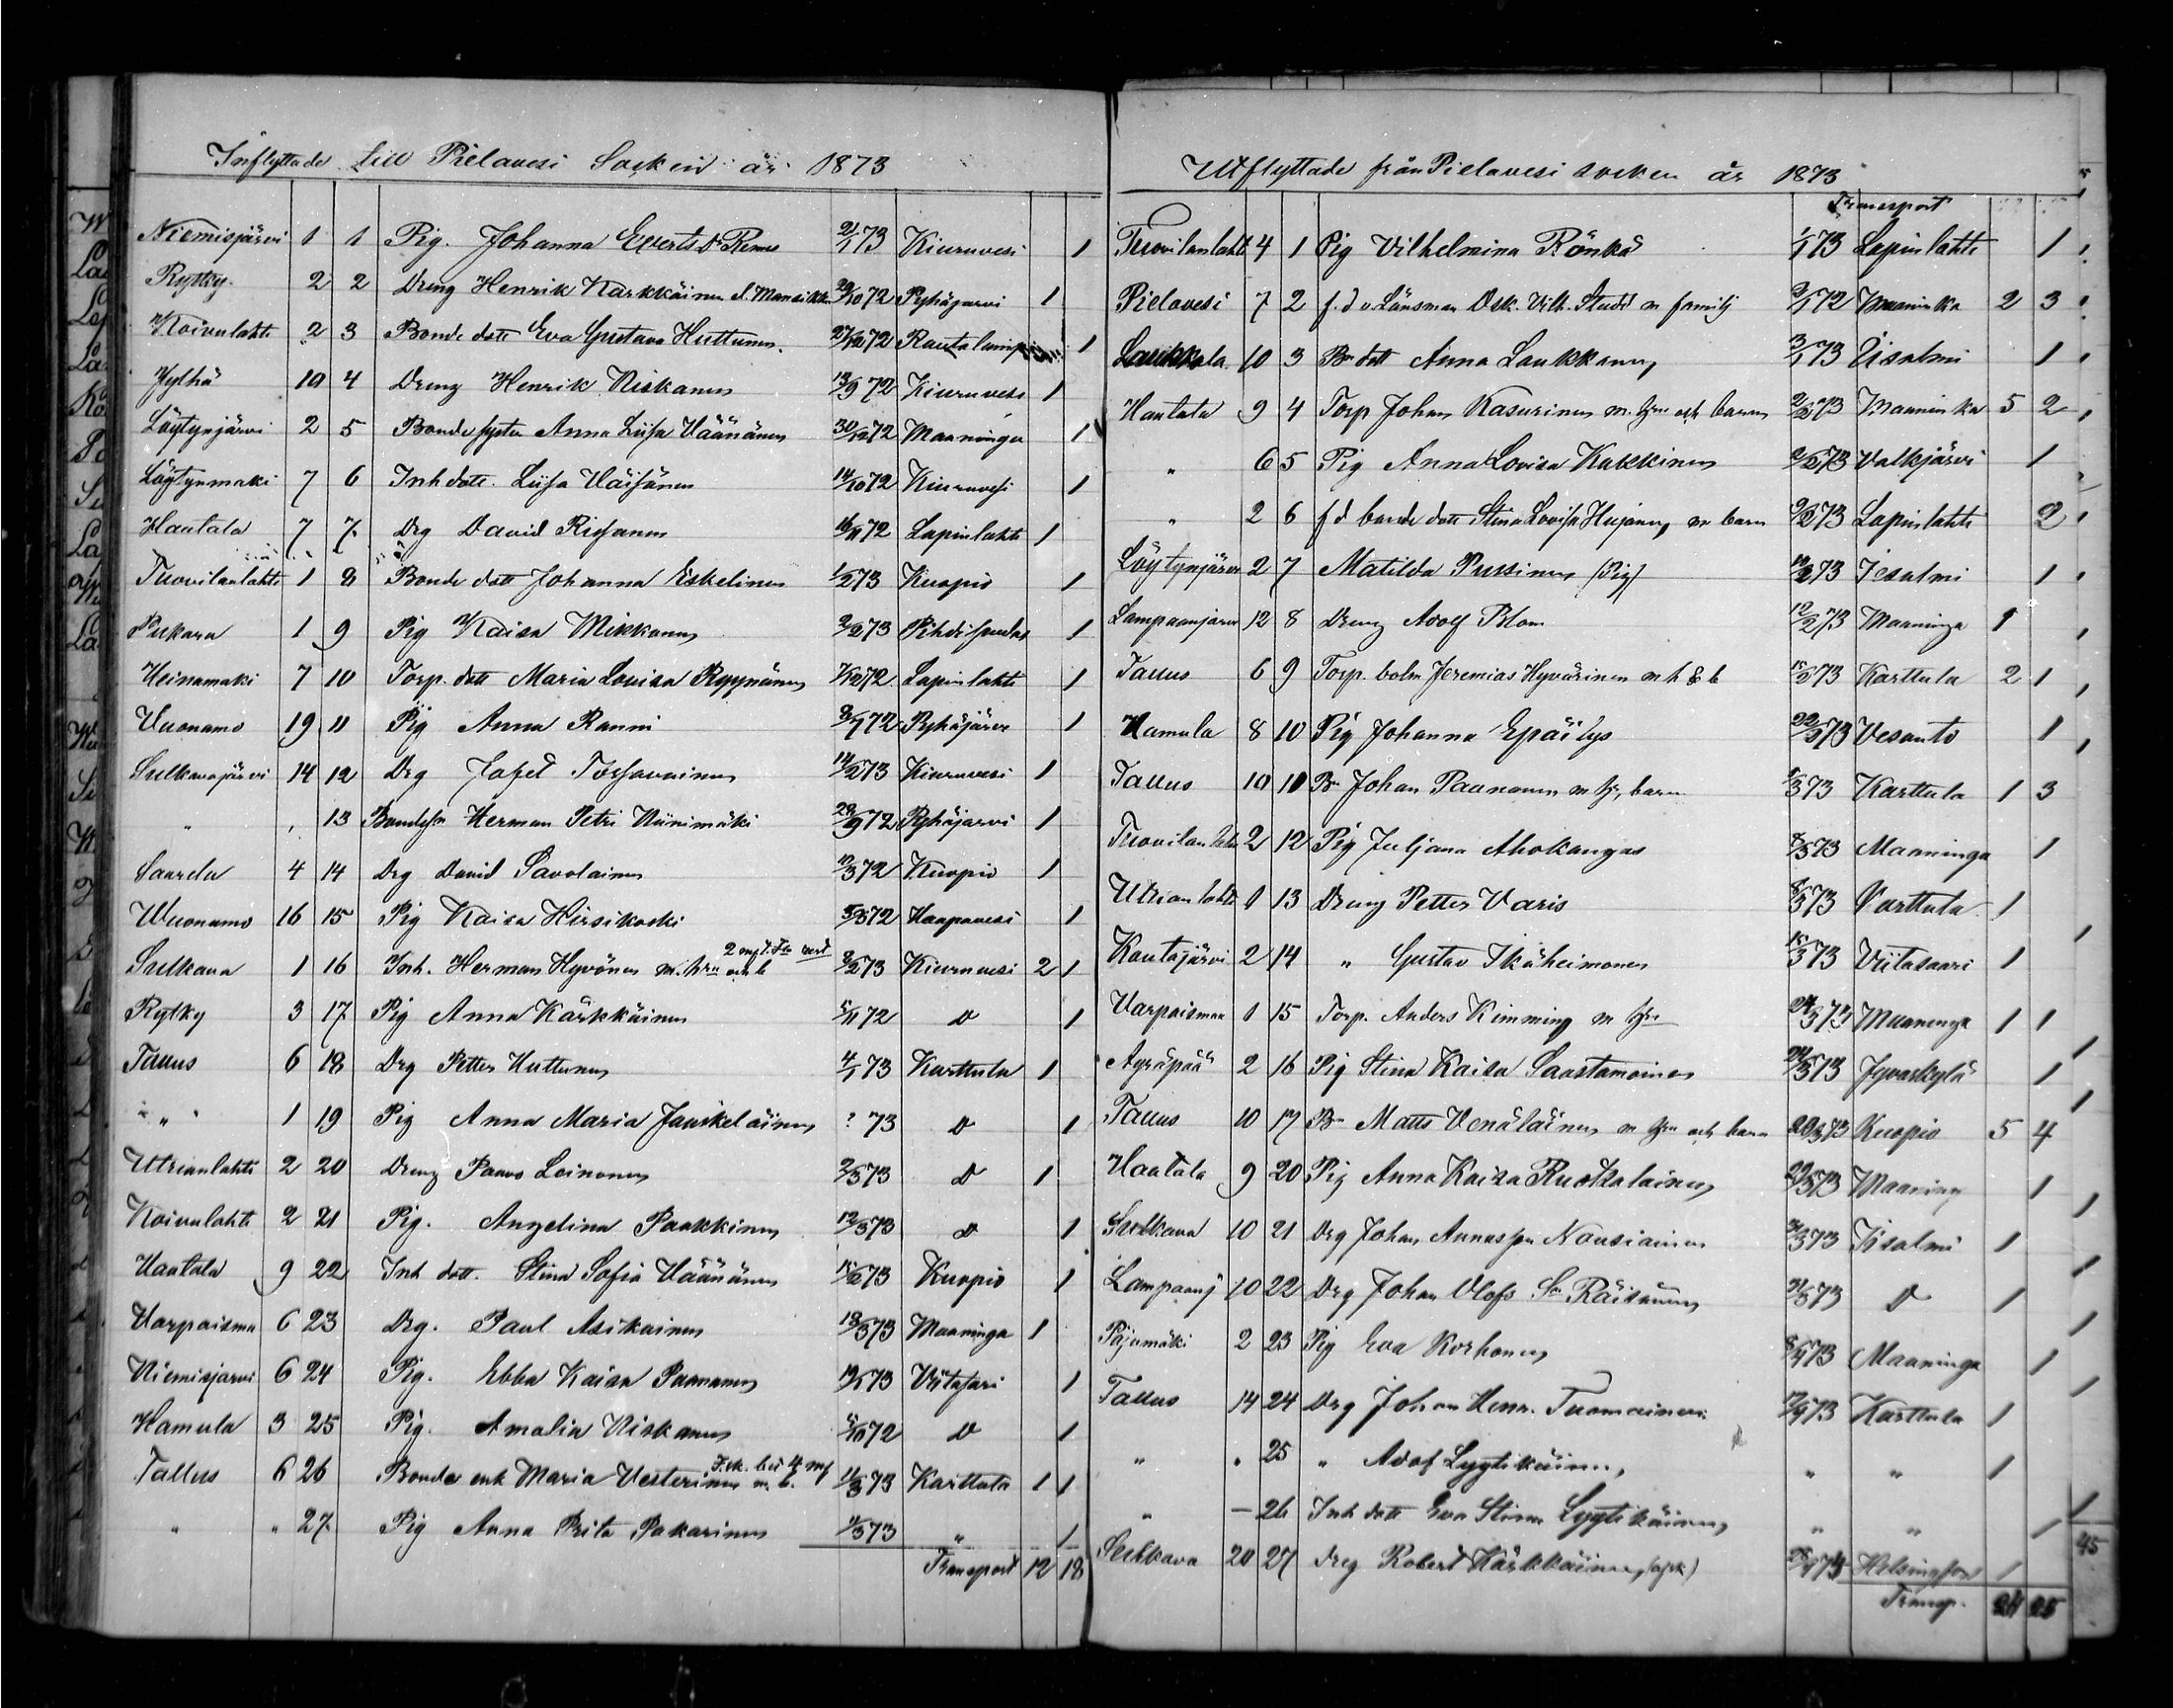 Inflyttade till Pielavesi Socken år 1873
Niemisjärvi 1 1 Pig. Johanna Everts Dr 2/1 73 Kiuruvesi 1
Rytky 2 2 Dreng Henrik Karkkäinen 29/10 72 Pyhäjarvi 1
Koivulahti 2 3 Bonde dott Eva Gustava Huttunen 27/12 72 Rautalampi 1
Jylhä 10 4 Dreng Henrik Niskanen 19/9 72 Kiuruvesi 1
Löytynjärvi 2 5 Bonde syster Anna Liisa Väänänen 30/12 72 Maaninga 1
Löytynmaki 7 6 Inh dott. Liisa Väisänen 14/10 72 Kiuruvesi 1
Hautala 7 7 Drg David Rissanen 16/11 72 Lapinlahti 1
Tuovilanlahti 1 8 Bonde dott Johanna Eskelinen 1/2 73 Kuopio 1
Pukara 1 9 Pig Kaisa Mikkanen 2/2 73 Pihtipudas 1
Heinamaki 7 10 Torp. dott Maria Lovisa Ryynänen 7/12 72 Lapinlahti 1
Vuonamo 19 11 Pig Anna Ranni 8/7 72 Pyhäjärvi 1
Sulkavajärvi 14 12 Drg Jafet Tossavainen 14/2 73 Kiuruvesi 1
" " 13 Bondeson Herman Petri Niinimäki 29/9 72 Pyhäjarvi 1
Saarela 4 14 Drg David Savolainen 10/3 72 Kuopio 1
Wuonamo 16 15 Pig Kaisa Hirsikoski 5/5 72 Haapavesi 1
Sulkava 1 16 Inh. Herman Hyvönen m. hru och b 3/2 73 Kiuruvesi 2 1
Rytky 3 17 Pig Anna Kärkkäinen 5/11 72 D 1
Tallus 6 18 Drg Petter Huttunen 4/1 73 Karttula 1
" 1 19 Pig Anna Maria Jauskeläinen ? 73 D 1
Utrianlahti 2 20 Dreng Paavo Leinonen 2/3 73 D 1
Koivulahti 2 21 Pig. Angelina Paakkinen 12/3 73 D 1
Hautala 9 22 Inh dott. Stina Sofia Väänänen 15/2 73 Kuopio 1
Varpaisma 6 23 Drg. Paul Asikainen 18/3 73 Maaninga 1
Niemisjarvi 6 24 Pig. Ebba Kaisa Paananen 19/1 73 Viitasari 1
Hamula 3 25 Pig. Amalia Niskanen 5/10 72 D 1
Tallus 6 26 Bonde enk Maria Vesterinen m. b. 11/3 73 Karttula 1 1
" " 27 Pig Anna Brita Pakarinen 9/3 73 " 1
Transport 12 18
Utflyttade från Pielavesi socken år 1873
Transport
Tuovilanlahti 4 1 Pig Vilhelmina Rönkä 1/1 73 Lapinlahti 1
Pielavesi 7 2 f. d v. Länsman Osk. Vilh. m familj 2/1 72 Maaninka 2 3
Laukkala 10 3 Bn dott Anna Laukkanen 3/1 73 Iisalmi 1
Hautala 9 4 Torp Johan Kasurinen m. hru och barn 2/2 73 Maaninka 5 2
" 6 5 Pig Anna Lovisa Kukkinen 2/2 73 Valkjärvi 1
" 2 6 f d bonde dott Stina Lovisa m barn 9/2 73 Lapinlahti 2
Löytynjärvi 2 7 Matilda Pussinen (Pig) 10/2 73 Iisalmi 1
Lampaanjarvi 12 8 Dreng Adolf Blom 12/2 73 Maaninga 1
Tallus 6 9 Torp. bolm Jeremias Hyvärinen m h & b 15/2 73 Karttula 2 1
Hamula 8 10 Pig Johanna Epäilys 22/2 73 Vesanto 1
Tallus 10 10 Bn Johan Paananen m hr, barn 1/3 73 Karttula 1 3
Tuovilanlahti 2 12 Pig Juljana Ahokangas 8/3 73 Maaninga 1
Utrianlahti 1 13 Dreng Petter Varis 8/3 73 Karttula 1
Kautajärvi 2 14 " Gustav Ikäheimonen 15/3 73 Viitasaari 1
Varpaismaa 1 15 Torp. Anders Kimming m hru 24/3 73 Maaninga 1 1
Ayräpää 2 16 Pig Stina Kaisa Saastamoinen 24/3 73 Jyvaskylä 1
Tallus 10 17 Bn Matts Venäläinen m hru och barn 20/3 73 Kuopio 5 4
Hautala 9 20 Pig Anna Kaisa Ruotsalainen 29/3 73 Maaning 1
Sulkava 10 21 Drg Johan Annasson Nousiainen 31/3 73 Iisalmi 1
Lampaanj 10 22 Drg Johan Olofs Sn Räisänen 31/3 73 D 1
Pajumäki 2 23 Pig Eva Korhonen 8/4 73 Maaninga 1
Tallus 14 24 Drg Johan Henr. Tuomainen 12/4 73 Karttula 1
" " 25 " Adof Lyytikäinen, " " 1
" — 26 Inh dott Eva Stina Lyytikäinen " " 1
Sulkava 20 27 Dreg Robert Kärkkäinen 73 Helsingfors 1
Transp. 24 25
45